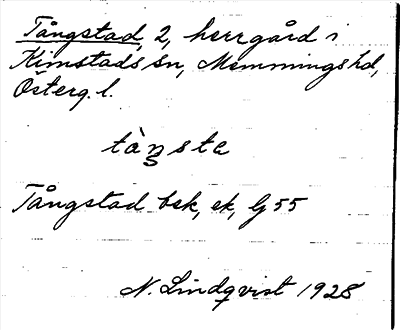 Tångstad, 2, herrgård i
Kimstads sn, Memmings hd,
Österg. l.
tàŋsta
Tångstad bsk, ek, G 55
N. Lindqvist 1928